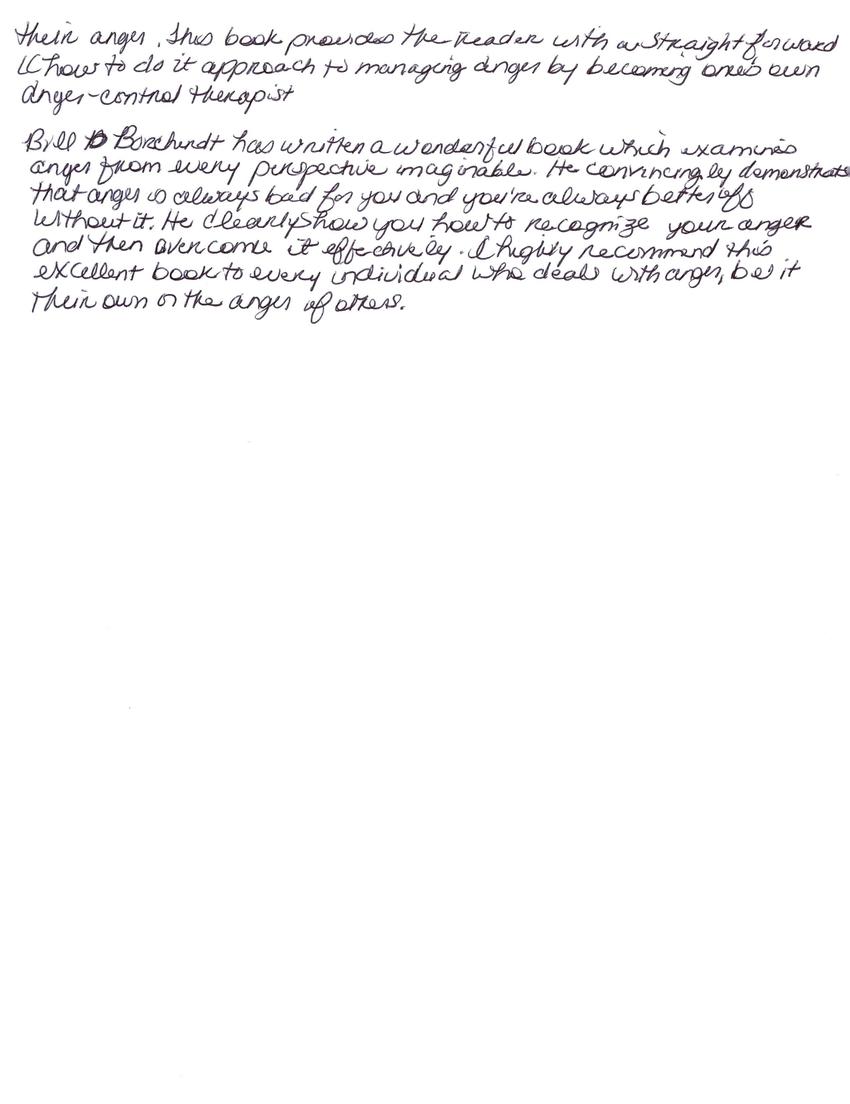 their anger. This book provides the reader with a straight forward
"how to do it approach to managing anger by becoming one's own
anger-control therapist
Bill Borcherdt has written a wonderful book which examines
anger from every perspective imaginable. He convincingly demonstrats
that anger is always bad for you and you're always better off
without it. He clearly show you how to recognize your anger
and then overcome it effectively. I highly recommend this
excellent book to every individual who deals with anger, be it
their own or the anger of others.